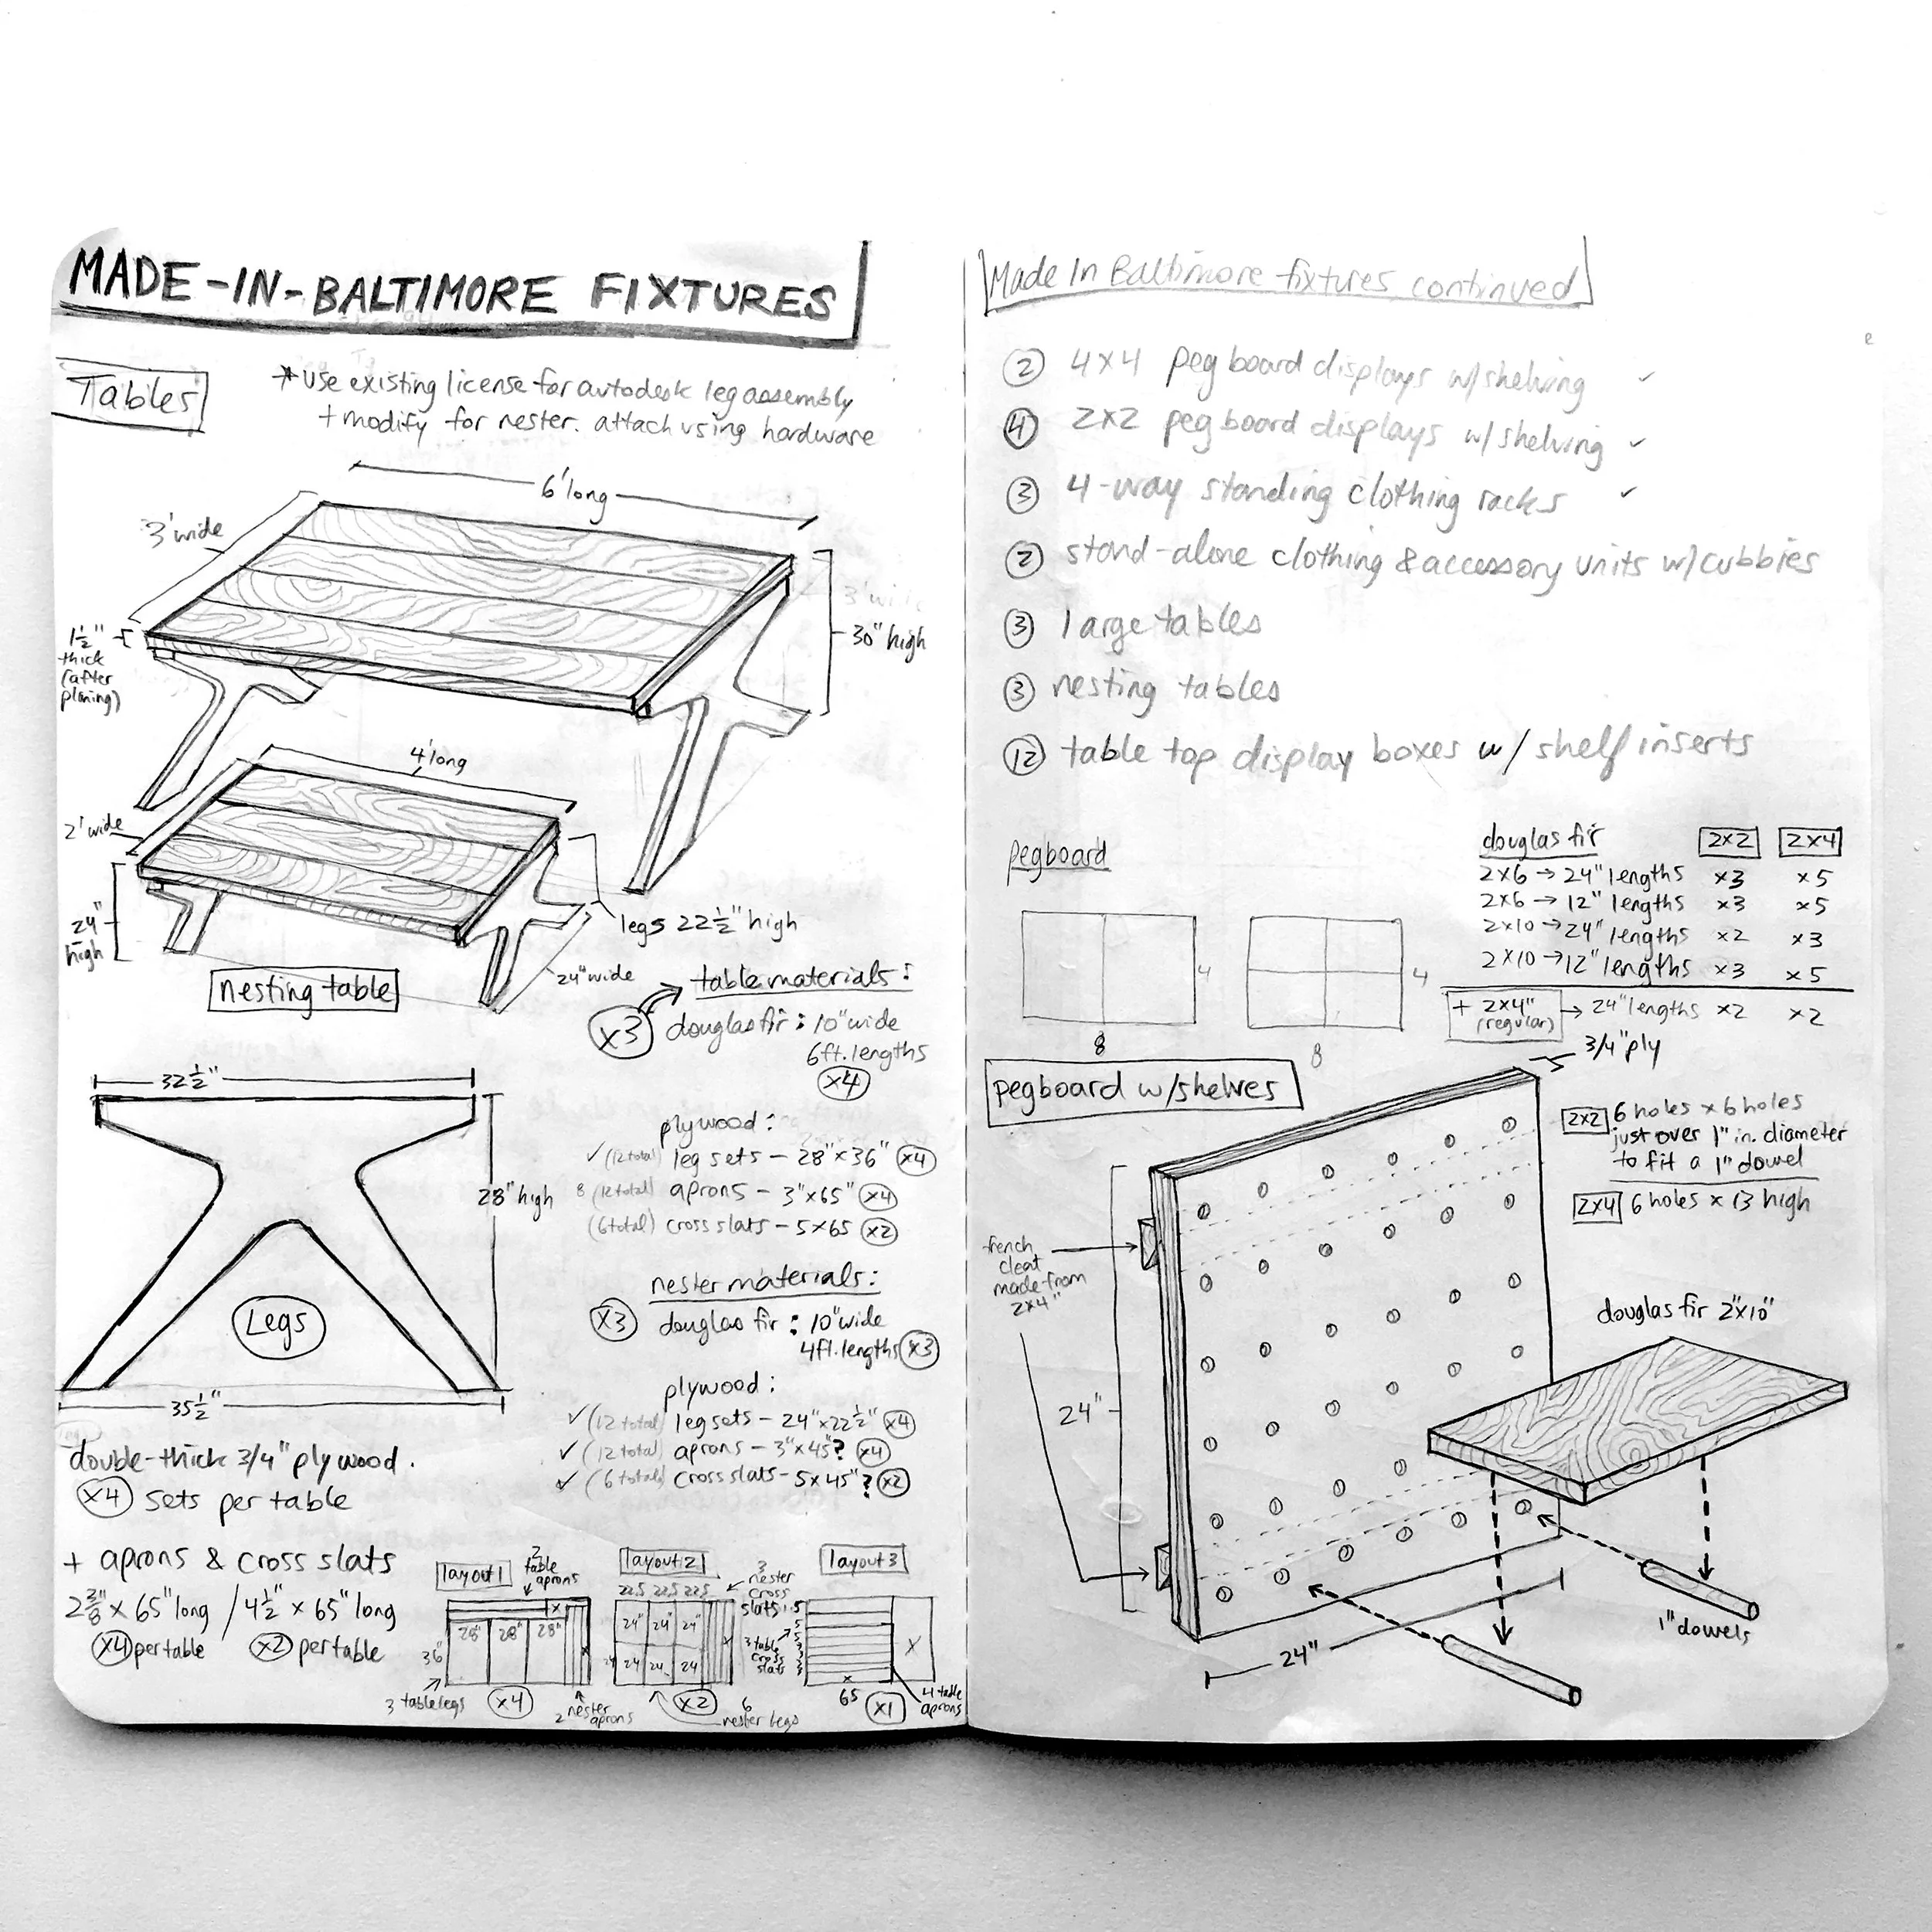 MADE-IN-BALTIMORE FIXTURES
Tables
*use existing license for autodesk leg assembly
+ modify for nester. attach using hardware
6' long
3' wide
30" high
1½"
thick
(after
planing)
4' long
2' wide
24"
high
legs 22½" high
24" wide
nesting table
x3 table materials:
douglas fir: 10" wide
6ft. lengths
x4
32½"
28" high
Legs
35½"
plywood:
✓(12 total) leg sets - 28"x36" x4
8 (12 total) aprons - 3"x65" x4
(6 total) cross slats - 5x65 x2
nester materials:
x3 douglas fir: 10" wide
4ft. lengths x3
plywood:
✓(12 total) leg sets - 24"x22½" x4
✓(12 total) aprons - 3"x45"? x4
✓(6 total) cross slats - 5x45"? x2
double-thick 3/4" plywood.
x4 sets per table
+ aprons & cross slats
2⅜" x 65" long / 4½" x 65" long
x4 per table x2 per table
layout 1
2
table
aprons
x
28" 28" 28"
36"
x
3 table legs
x4
2 nester
aprons
layout 2
22.5 22.5 22.5
24" 24" 24"
24 24 24
24
x2
6
nester legs
3
nester
cross
slats
3 table
cross
slats
layout 3
X
65
x1
4 table
aprons
Made In Baltimore fixtures continued
2 4x4 peg board displays w/shelving ✓
4 2x2 peg board displays w/shelving ✓
3 4-way standing clothing racks ✓
2 stand-alone clothing & accessory units w/cubbies
3 large tables
3 nesting tables
12 table top display boxes w/ shelf inserts
pegboard
4
8
4
8
douglas fir 2x2 2x4
2x6 → 24" lengths x3 x5
2x6 → 12" lengths x3 x5
2x10 → 24" lengths x2 x3
2x10 → 12" lengths x3 x5
+ 2x4" (regular) → 24" lengths x2 x2
pegboard w/shelves
3/4" ply
2x2 6 holes x 6 holes
just over 1" in. diameter
to fit a 1" dowel
2x4 6 holes x 13 high
french
cleat
made from
2x4"
24"
douglas fir 2"x10"
24"
1" dowels